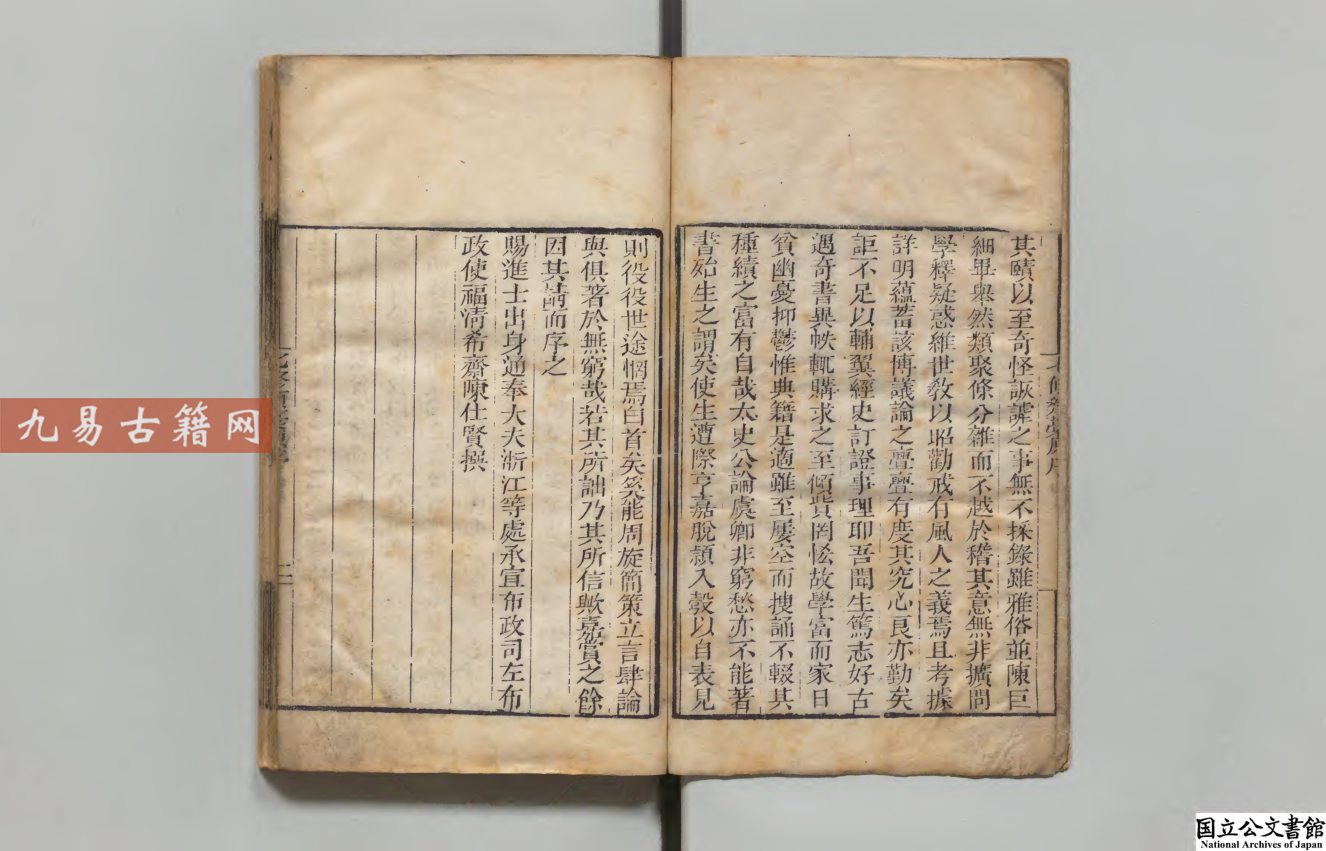 其賾以至奇怪詼謔之事無不採錄雖雅俗並陳巨
細畢舉然類聚條分雜而不越於稽其意無非擴問
學釋疑惑維世教以昭勸戒有風人之義焉且考據
詳明蘊蓄該博議論之亹亹有度其究心良亦勤矣
詎不足以輔翼經史訂證事理耶吾聞生篤志好古
遇奇書異帙輒購求之至傾貲罔恡故學富而家日
貧幽憂抑鬱惟典籍是適雖至屢空而搜誦不輟其
種績之富有自哉太史公論虞卿非窮愁亦不能著
書殆生之謂矣使生遭際亨嘉脫穎入彀以自表見
則役役世途惘焉白首矣奚能周旋簡策立言肆論
與俱著於無窮哉若其所詘乃其所信歟嘉賞之餘
因其請而序之
賜進士出身通奉大夫浙江等處承宣布政司左布
政使福清希齋陳仕賢撰
二
九易古籍网
国立公文書館
National Archives of Japan